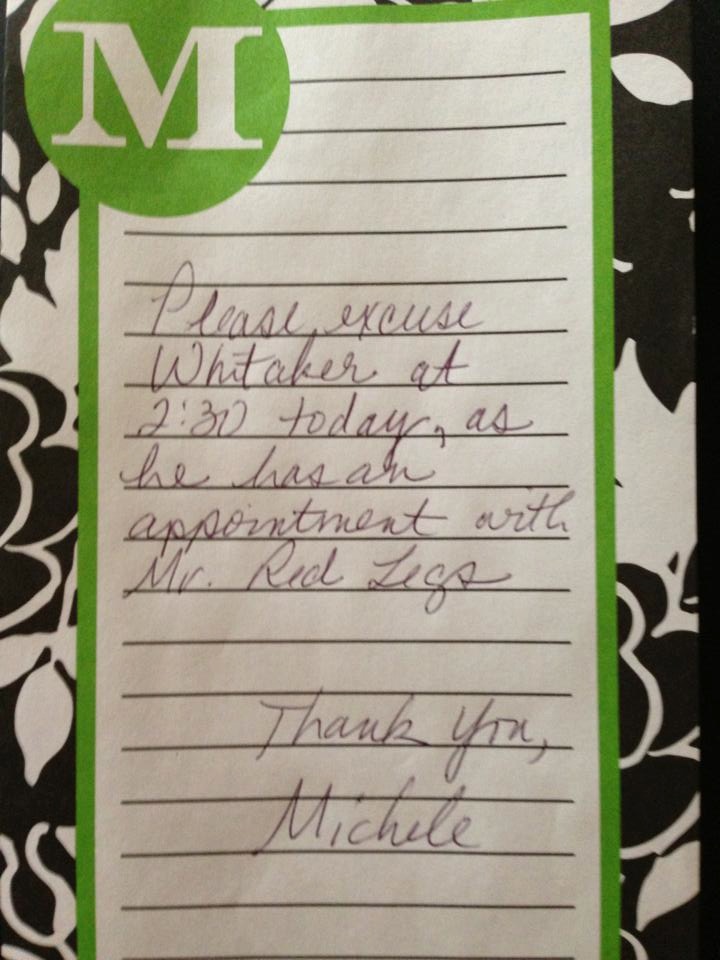 M
Please excuse
Whitaker at
2:30 today, as
he has an
appointment with
Mr. Red Legs
Thank you,
Michele